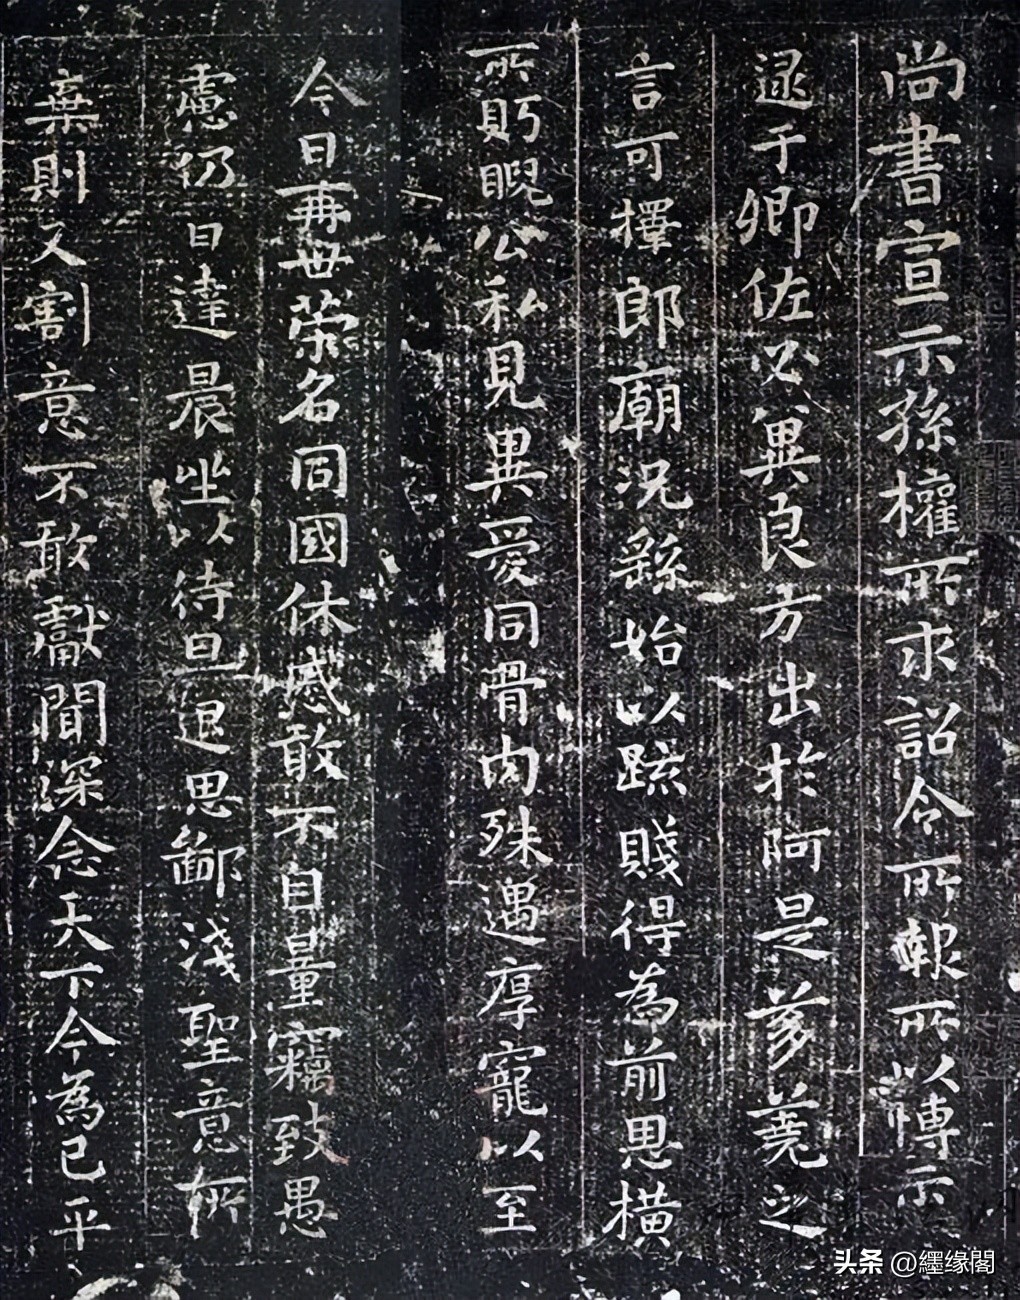 尚書宣示孫權所求詔令所報所以博示
逮于卿佐必冀良方出於阿是芻蕘之
言可擇郎廟況繇始以疏賤得為前恩橫
所眄睨公私見異愛同骨肉殊遇厚寵以至
今日再世榮名同國休慼敢不自量竊致愚
慮仍日達晨坐以待旦退思鄙淺聖意所
棄則又割意不敢獻聞深念天下今為已平
头条 @纆缘閣